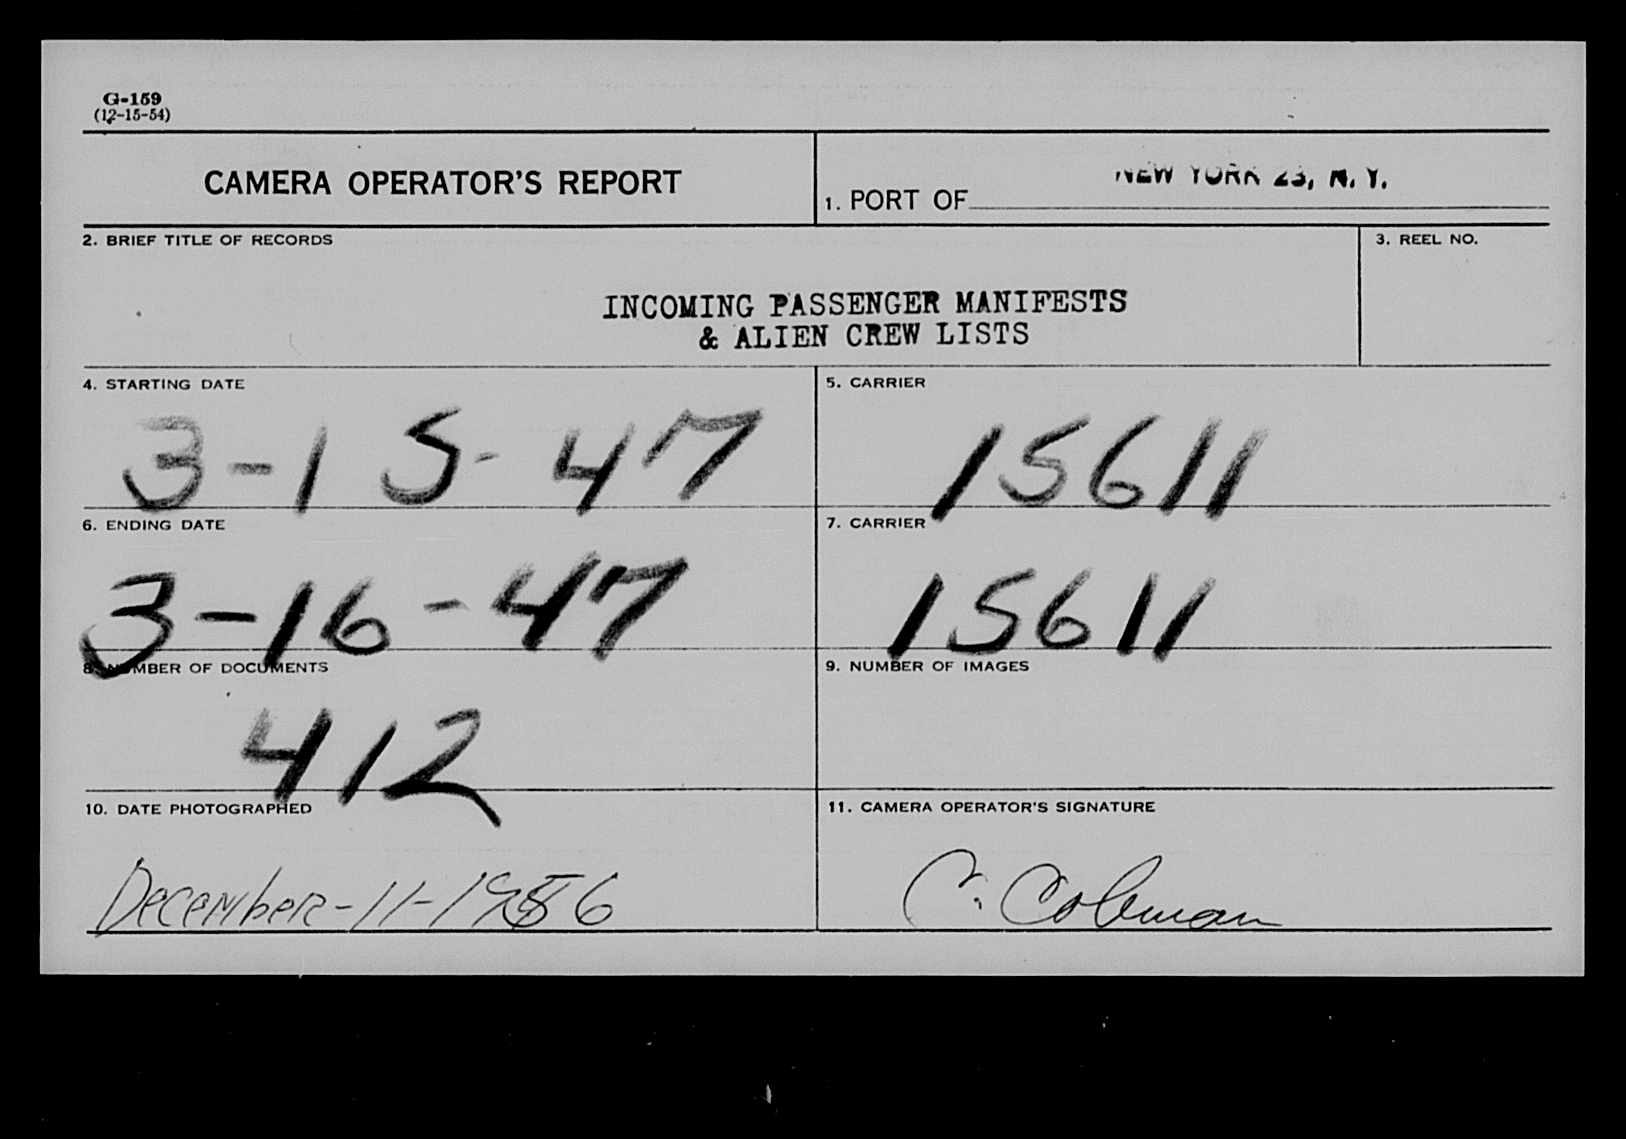 G-159
(12-15-54)
CAMERA OPERATOR'S REPORT
1. PORT OF NEW YORK 23, N. Y.
2. BRIEF TITLE OF RECORDS
3. REEL NO.
INCOMING PASSENGER MANIFESTS
& ALIEN CREW LISTS
4. STARTING DATE
5. CARRIER
3-15-47
15611
6. ENDING DATE
7. CARRIER
3-16-47
15611
8. NUMBER OF DOCUMENTS
9. NUMBER OF IMAGES
412
10. DATE PHOTOGRAPHED
11. CAMERA OPERATOR'S SIGNATURE
December-11-1956
C. Coleman